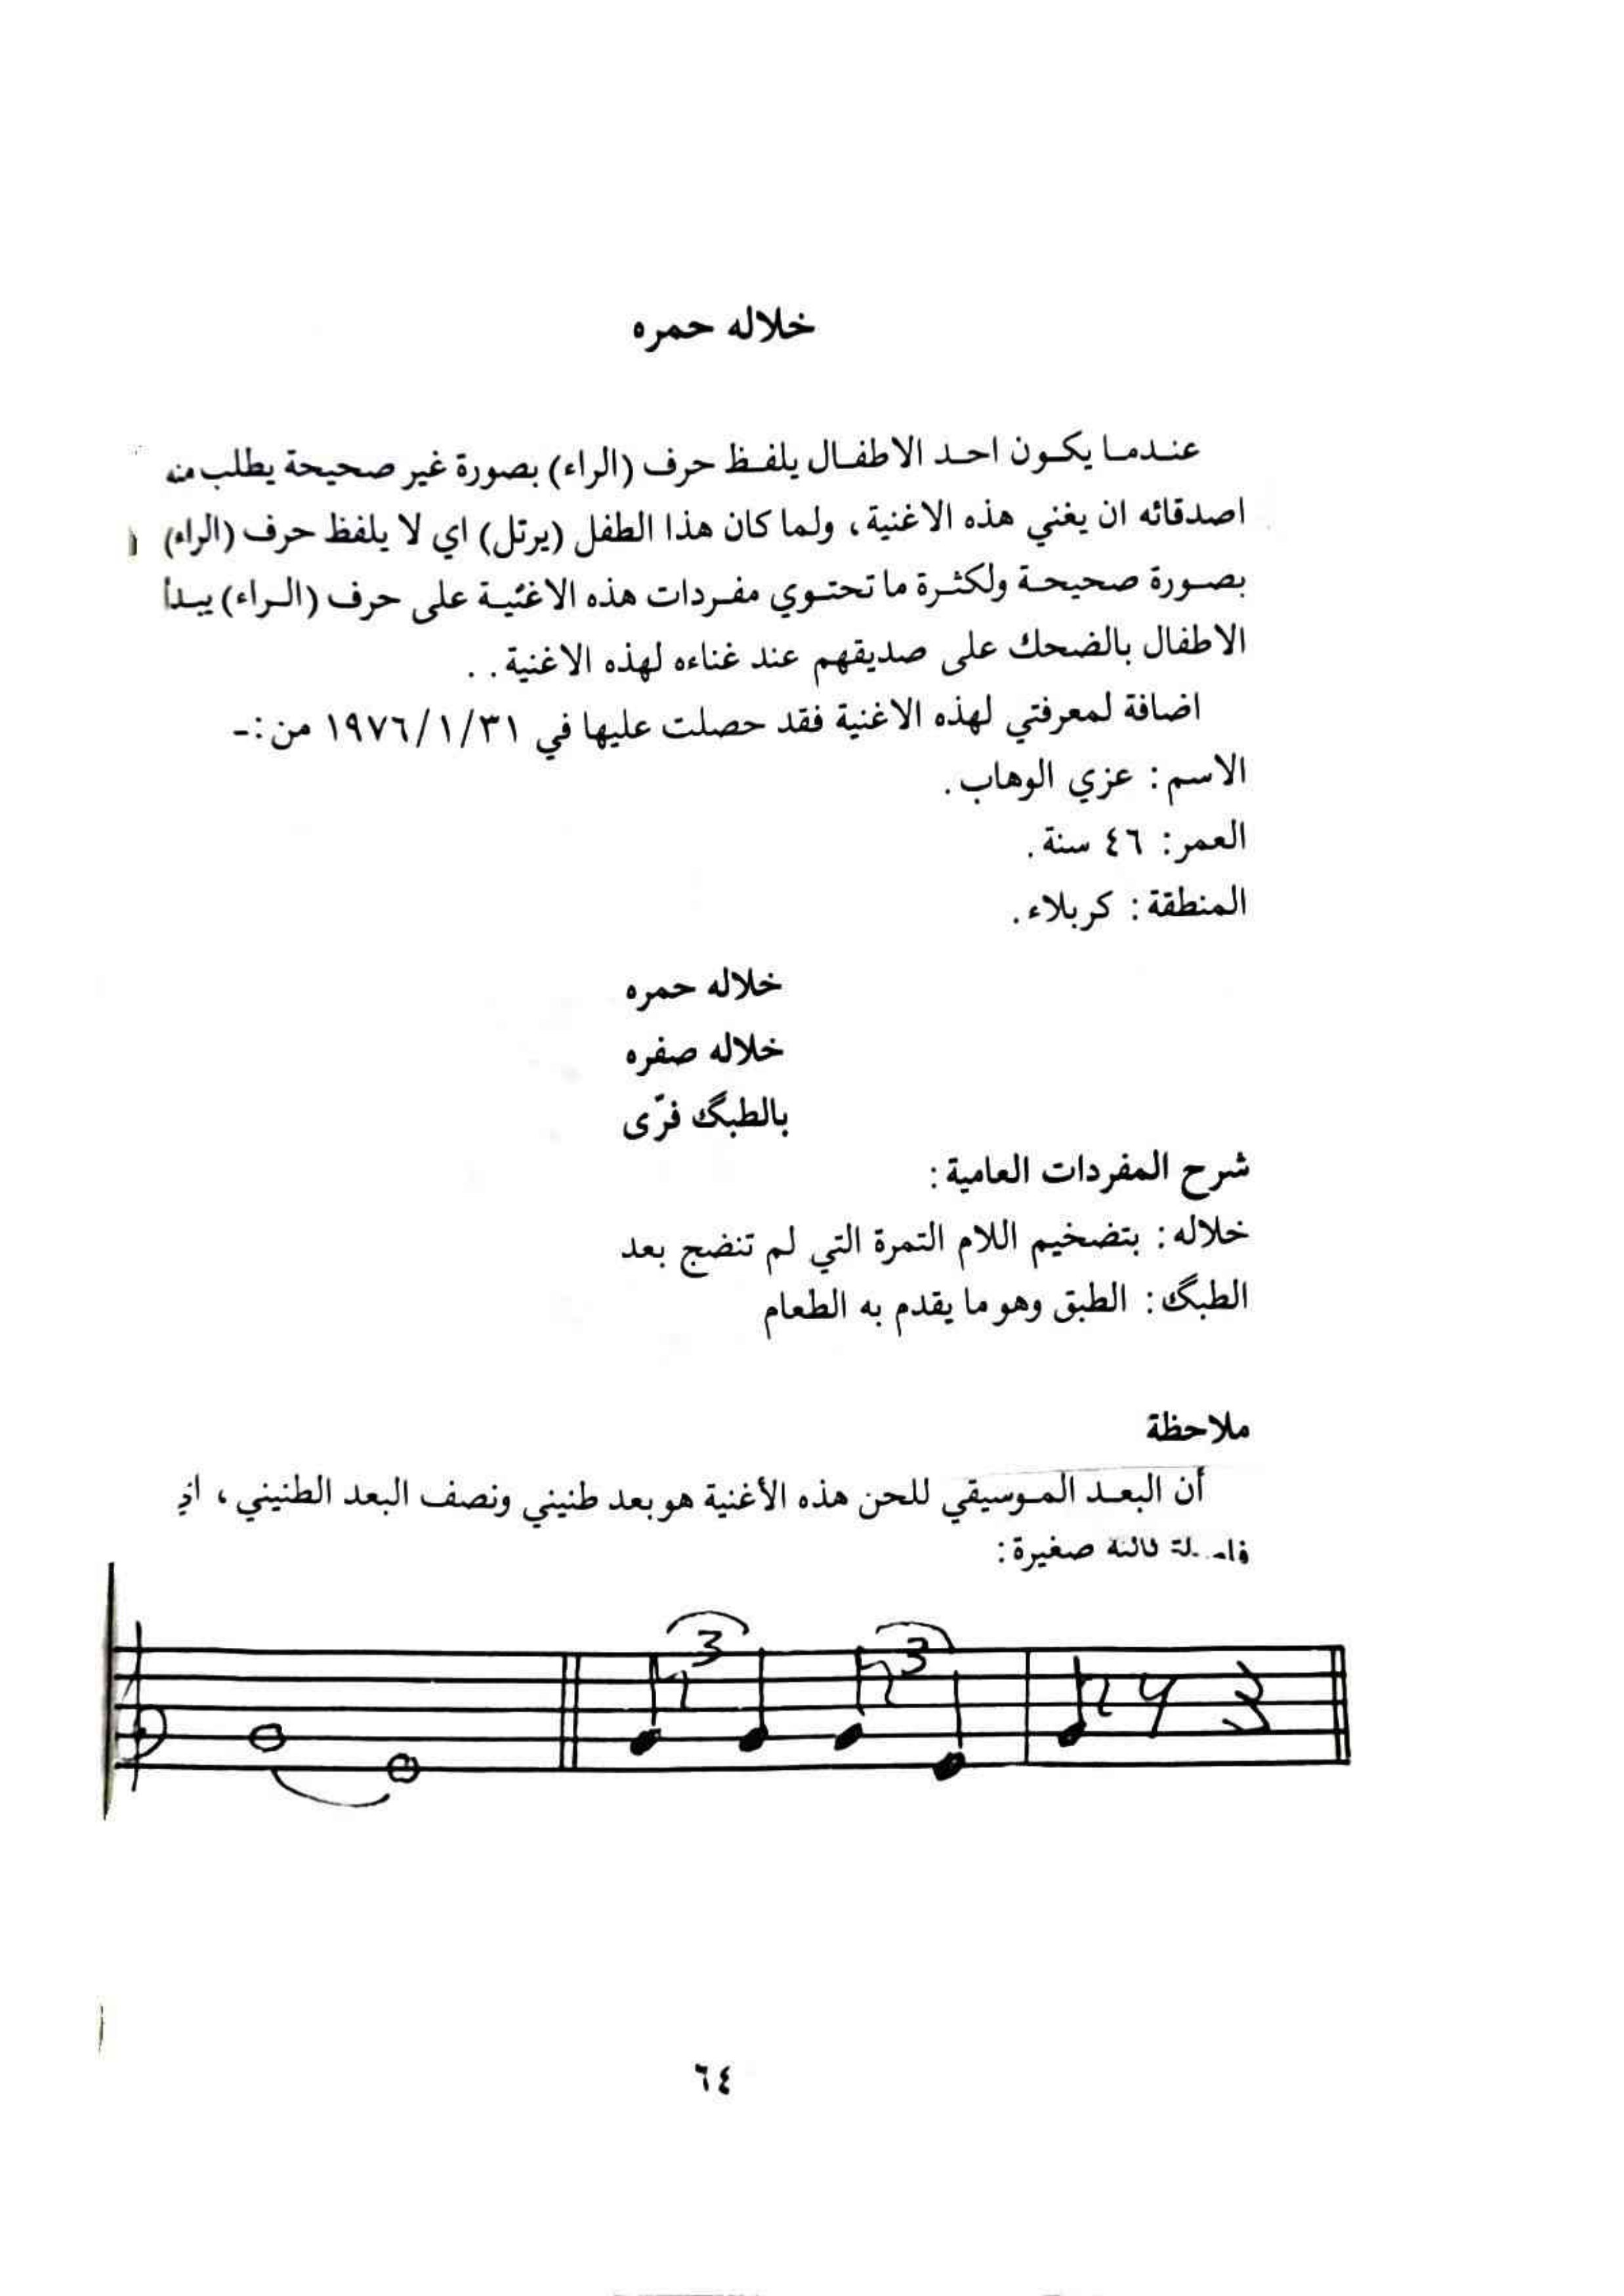 خلاله حمره
عندما يكون احد الاطفال يلفظ حرف (الراء) بصورة غير صحيحة يطلب منه
اصدقائه ان يغني هذه الاغنية، ولما كان هذا الطفل (يرتل) اي لا يلفظ حرف (الراء)
بصورة صحيحة ولكثرة ما تحتوي مفردات هذه الاغنية على حرف (الراء) يبدأ
الاطفال بالضحك على صديقهم عند غناءه لهذه الاغنية . .
اضافة لمعرفتي لهذه الاغنية فقد حصلت عليها في ٣١/١/١٩٧٦ من :-
الاسم : عزي الوهاب .
العمر : ٤٦ سنة .
المنطقة : كربلاء .
خلاله حمره
خلاله صفره
بالطبگ فرّى
شرح المفردات العامية :
خلاله : بتضخيم اللام التمرة التي لم تنضج بعد
الطبگ : الطبق وهو ما يقدم به الطعام
ملاحظة
أن البعد الموسيقي للحن هذه الأغنية هو بعد طنيني ونصف البعد الطنيني ، اذ
صغيرة :
3 3
٦٤